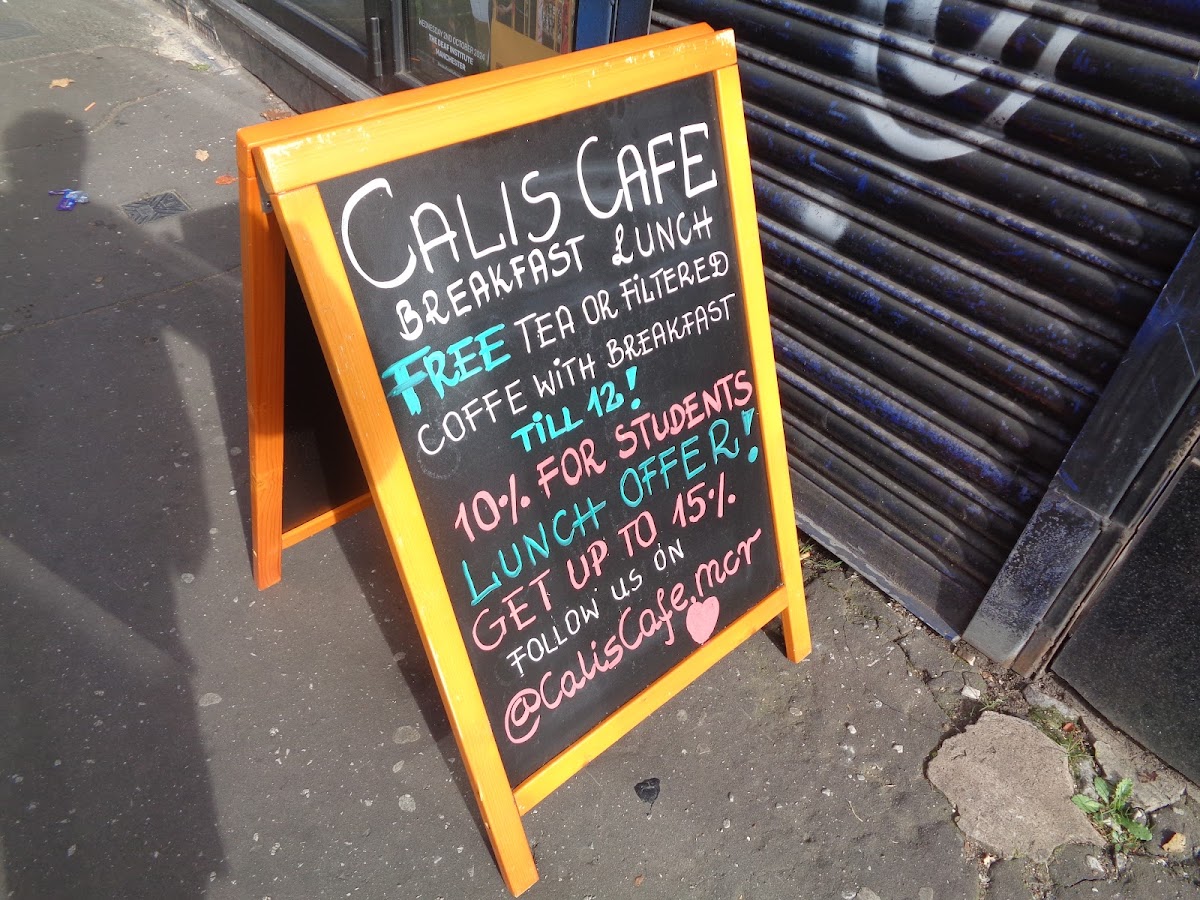 WEDNESDAY 2ND OCTOBER 2024
THE DEAF INSTITUTE
MANCHESTER
CALIS CAFE
BREAKFAST LUNCH
FREE TEA OR FILTERED
COFFE WITH BREAKFAST
TILL 12!
10% FOR STUDENTS
LUNCH OFFER!
GET UP TO 15%
FOLLOW US ON
@CalisCafe.mcr